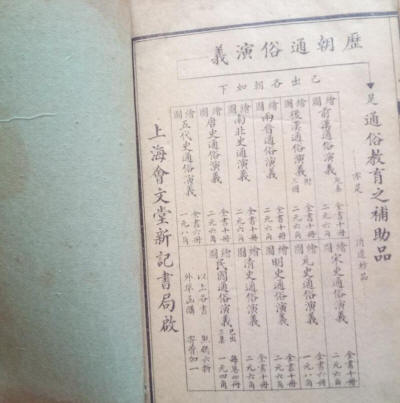 歷朝通俗演義
已出各朝如下
▼是通俗教育之補助品
亦是
消遣妙品
繪圖前漢通俗演義
全書十冊
二元六角
繪圖後漢通俗演義
全書十冊
二元六角
繪圖兩晉通俗演義
全書十冊
二元六角
繪圖南北史通俗演義
全書十冊
二元六角
繪圖唐史通俗演義
全書十冊
二元六角
繪圖五代史通俗演義
一元八角
繪圖宋史通俗演義
全書十冊
二元六角
繪圖元史通俗演義
全書六冊
一元八角
繪圖明史通俗演義
全書十冊
二元六角
繪圖清史通俗演義
全書十冊
二元六角
繪圖民國通俗演義
已出
每集四冊
一元四角
以上各書
照碼六折
外埠函購
寄費加一
上海會文堂新記書局啟